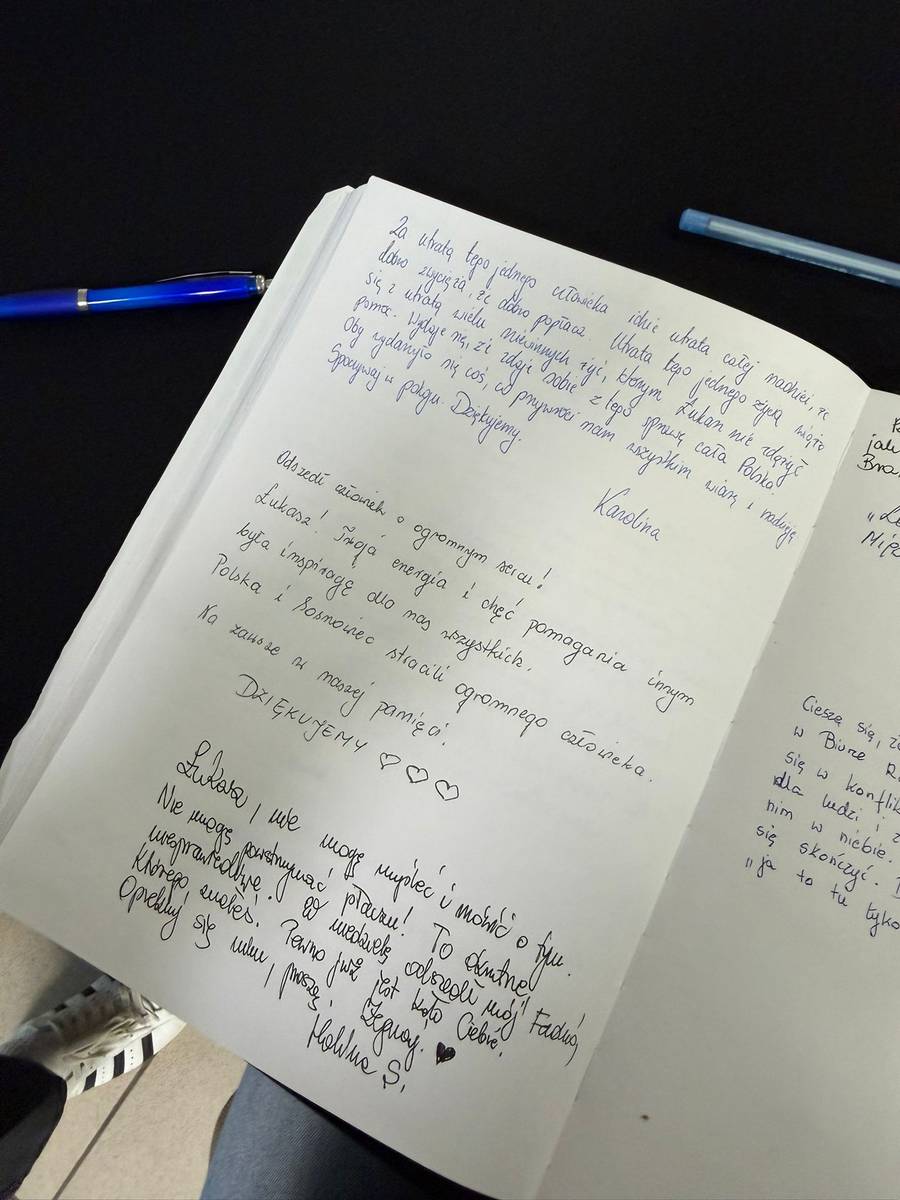 Za utratą tego jednego człowieka idzie utrata całej nadziei, że
dobro zwycięża, że dobro popłaca. Utrata tego jednego życia wiąże
się z utratą wielu niewinnych żyć, którym Łukasz nie zdążył
pomóc. Wydaje się, że zdaje sobie z tego sprawę cała Polska.
Oby wydarzyło się coś, co przywróci nam wszystkim wiarę i nadzieję
Spoczywaj w pokoju. Dziękujemy.
Karolina
Odszedł człowiek o ogromnym sercu!
Łukasz! Twoja energia i chęć pomagania innym
była inspiracją dla nas wszystkich.
Polska i Sosnowiec stracili ogromnego człowieka.
Na zawsze w naszej pamięci.
DZIĘKUJEMY ♡ ♡ ♡
Łukasz, nie mogę myśleć i mówić o tym.
Nie mogę powstrzymać płaczu! To okrutne,
niesprawiedliwe. W niedzielę odszedł mój
Którego znałeś. Pewno już jest koło Ciebie.
Opiekuj się nim, proszę. Żegnaj! ♥
Halina S.
"Le
Cieszę się, ż
w Biurze R
się w konflik
dla ludzi i z
nim w niebie.
się skończyć.
"ja to tu tylko